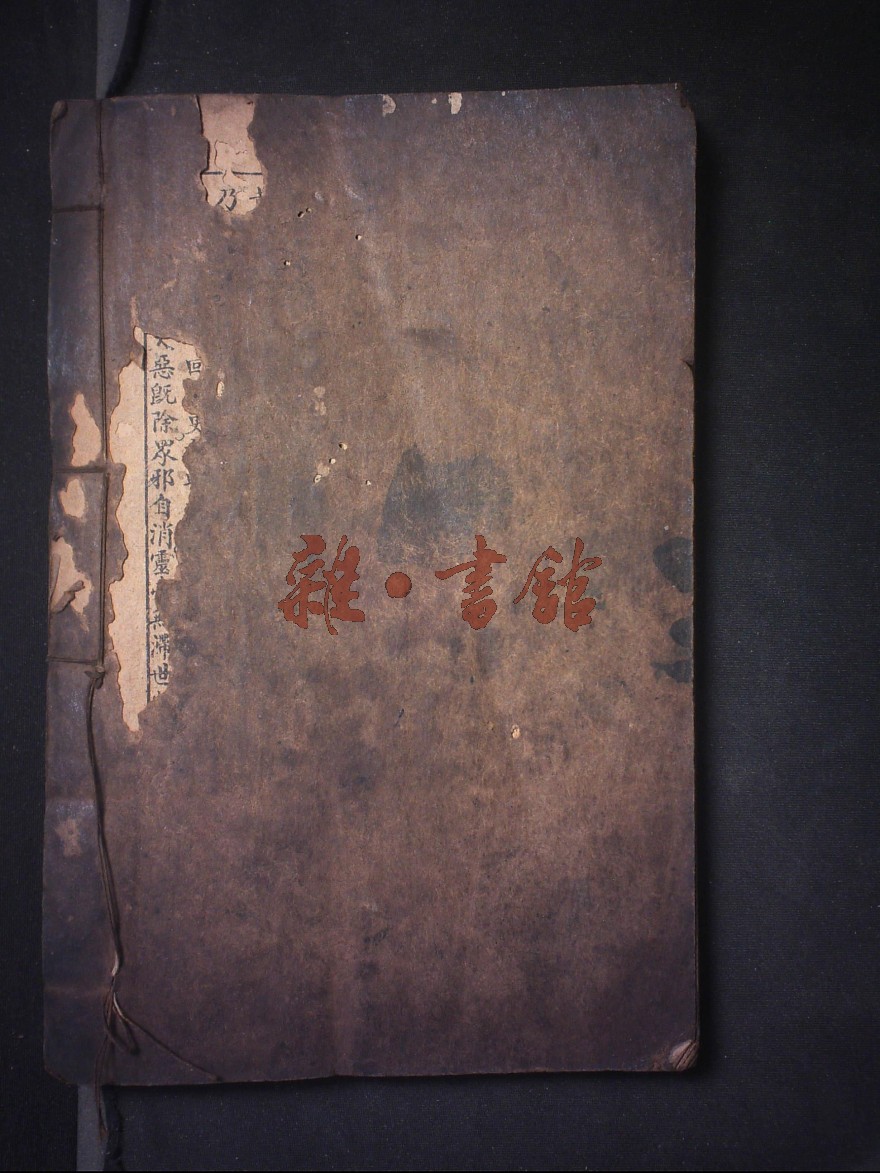 乃
回
惡既除眾邪自消靈
滯世
雜·書館